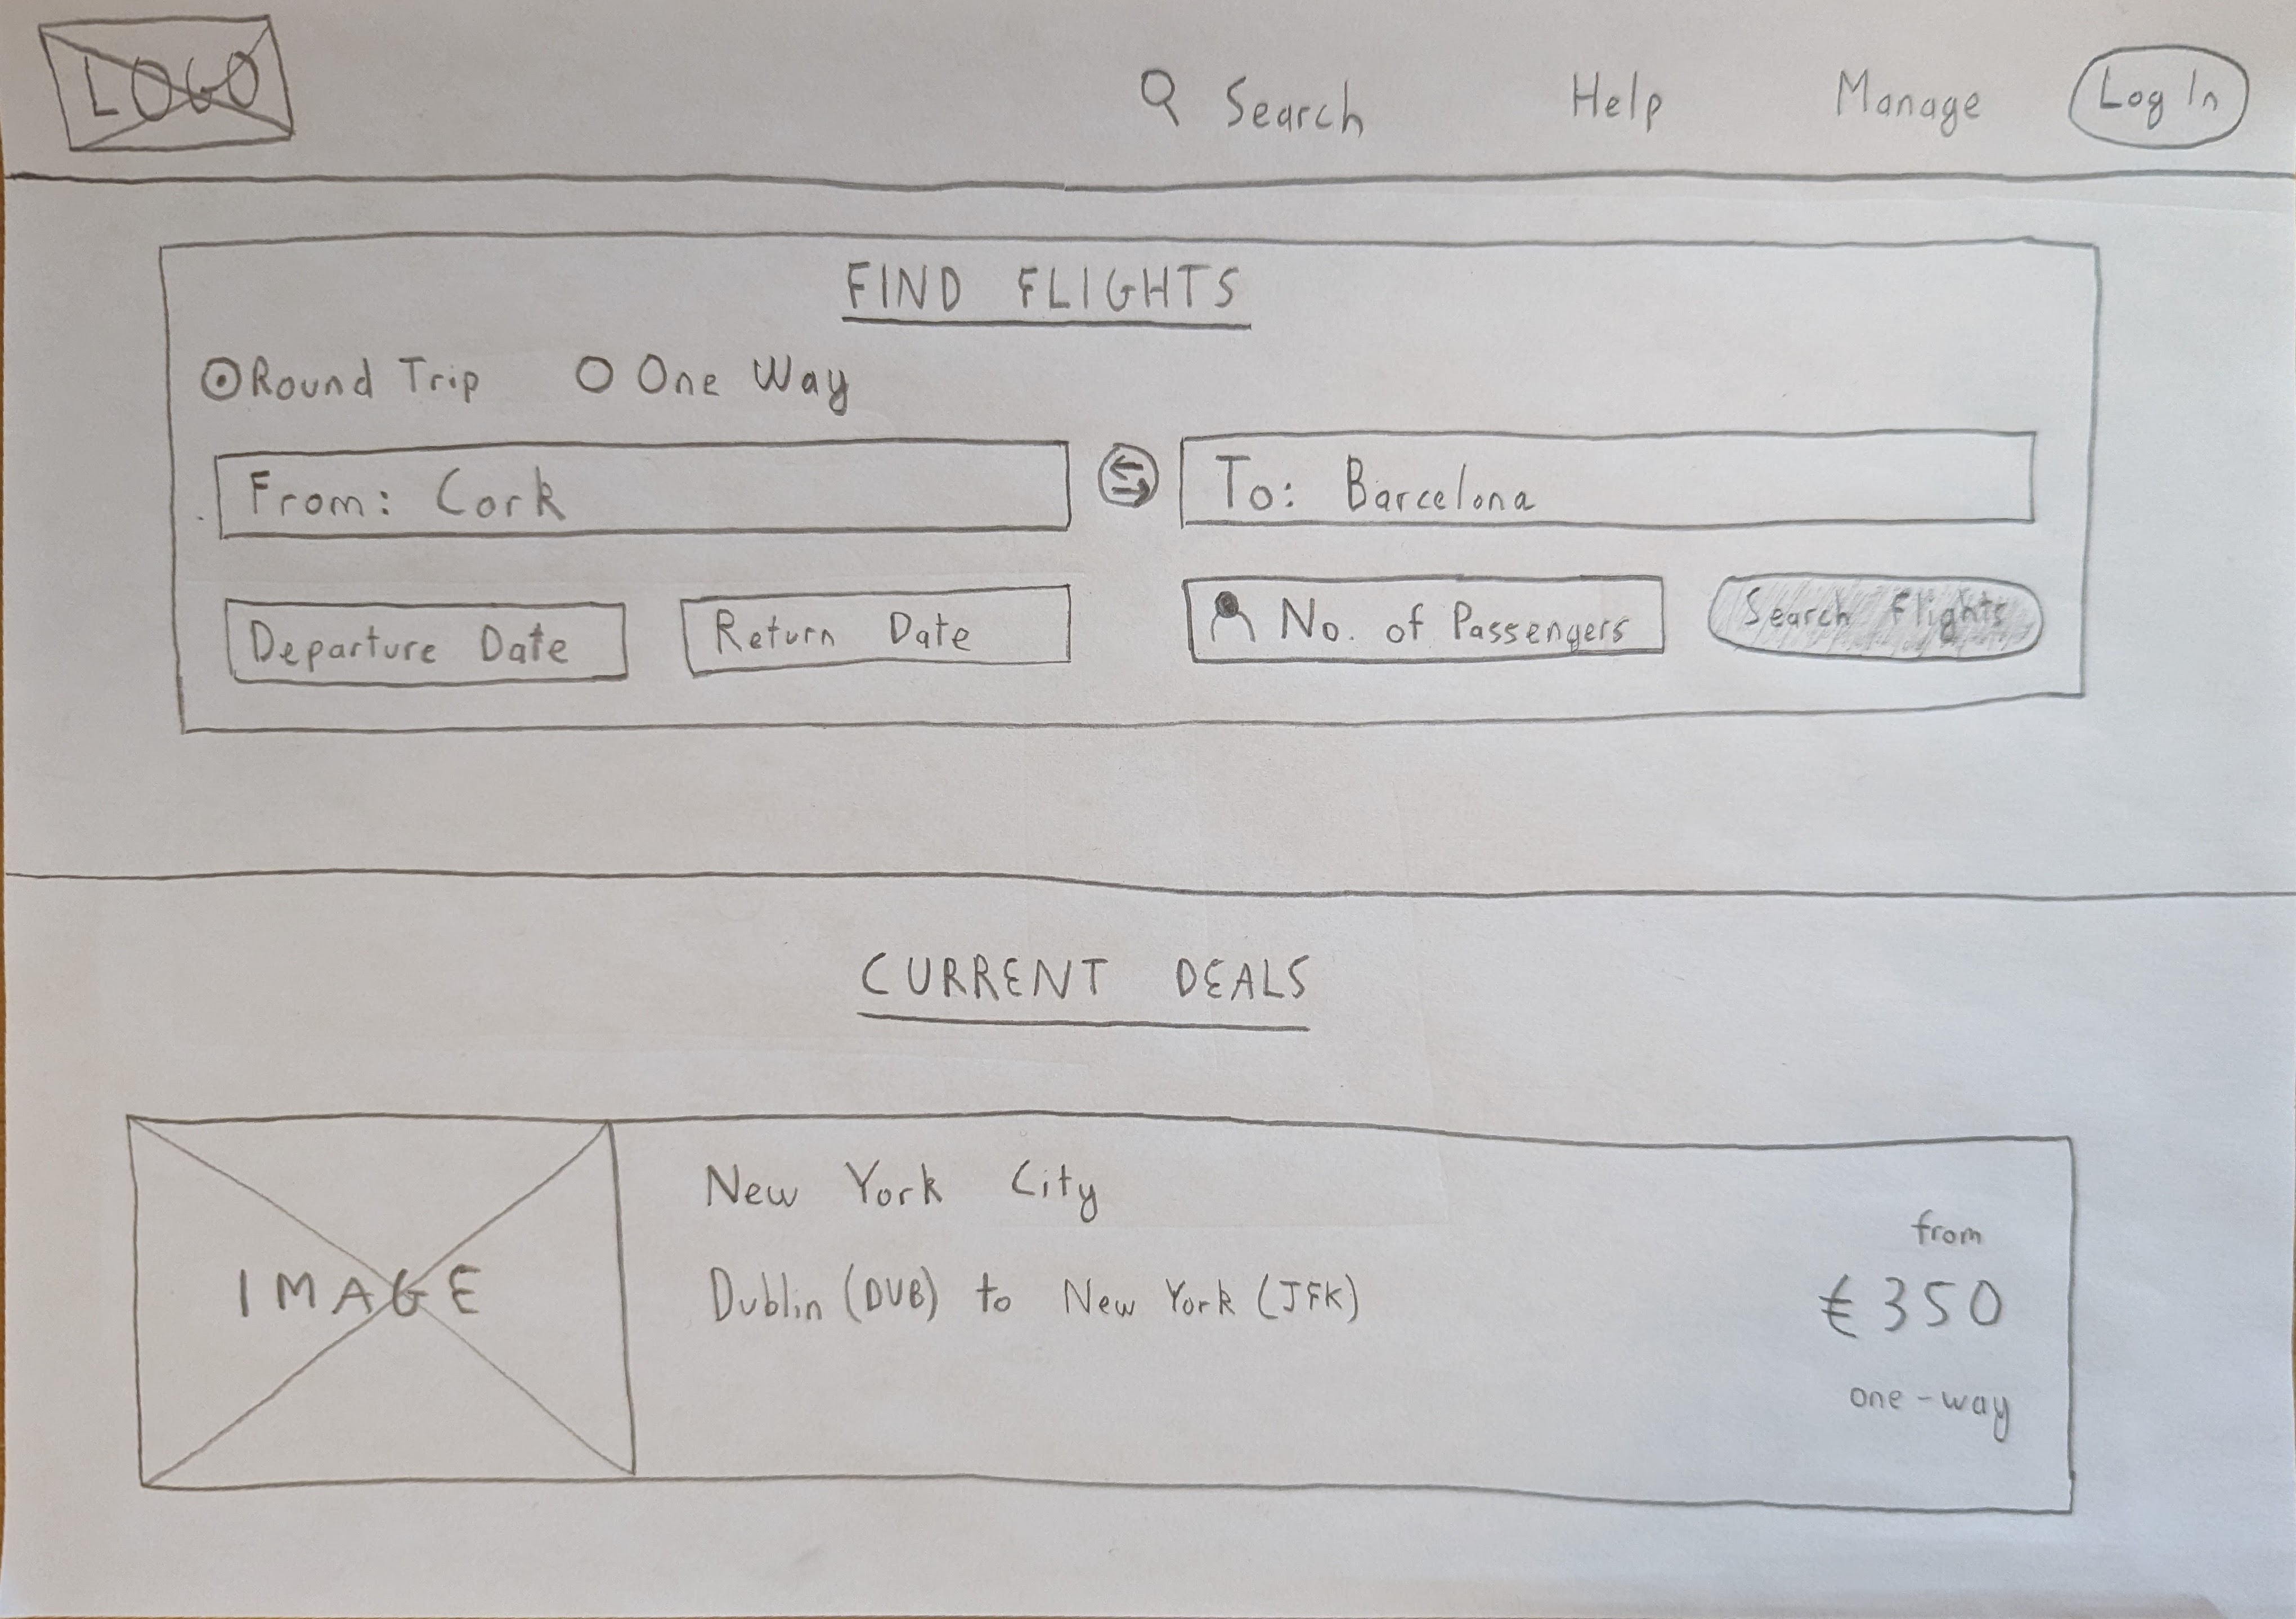 LOGO
Search Help Manage Log In
FIND FLIGHTS
Round Trip One Way
From: Cork To: Barcelona
Departure Date Return Date No. of Passengers Search Flights
CURRENT DEALS
IMAGE
New York City
Dublin (DUB) to New York (JFK)
from
€350
one-way